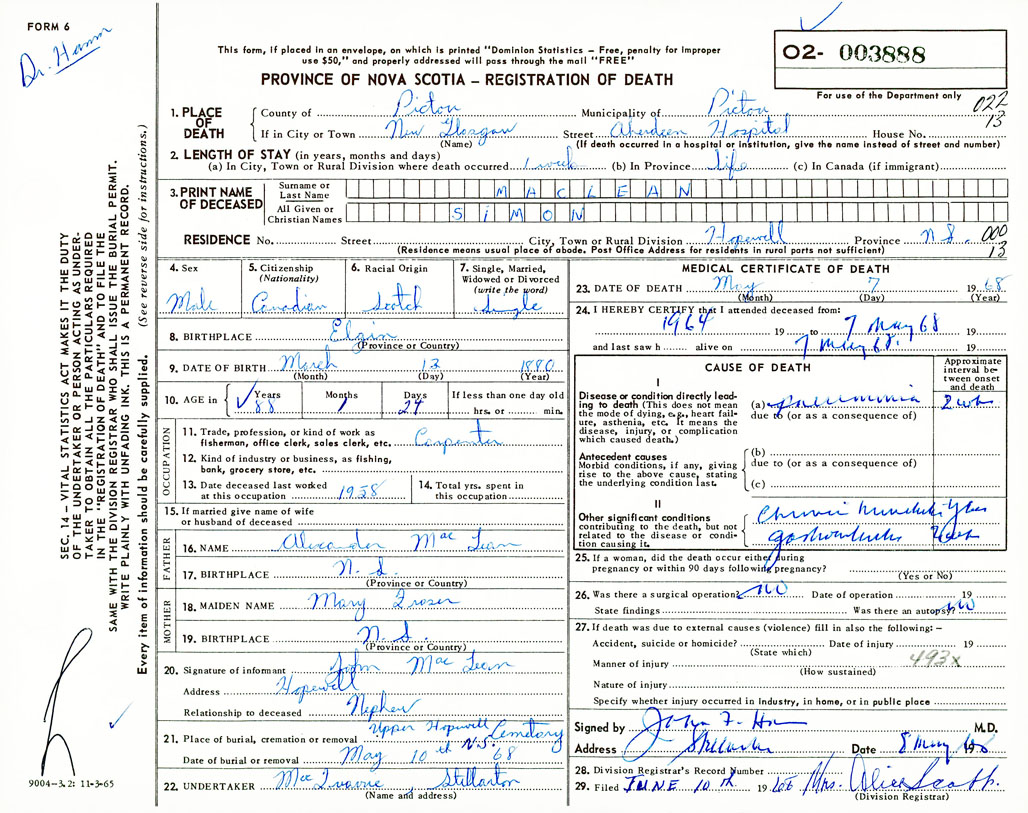 FORM 6
Dr. Hamm
This form, if placed in an envelope, on which is printed "Dominion Statistics – Free, penalty for improper
use $50," and properly addressed will pass through the mail "FREE"
PROVINCE OF NOVA SCOTIA – REGISTRATION OF DEATH
02- 003888
For use of the Department only
022
13
1. PLACE OF DEATH
County of Pictou Municipality of Pictou
If in City or Town New Glasgow Street Aberdeen Hospital House No.
(Name) (If death occurred in a hospital or institution, give the name instead of street and number)
2. LENGTH OF STAY (in years, months and days)
(a) In City, Town or Rural Division where death occurred 1 week (b) In Province Life (c) In Canada (if immigrant)
3. PRINT NAME OF DECEASED
Surname or Last Name MACLEAN
All Given or Christian Names SIMON
RESIDENCE No. Street City, Town or Rural Division Hopewell Province N.S. 000
13
(Residence means usual place of abode. Post Office Address for residents in rural parts not sufficient)
4. Sex Male
5. Citizenship (Nationality) Canadian
6. Racial Origin Scotch
7. Single, Married, Widowed or Divorced (write the word) Single
8. BIRTHPLACE Elgin
(Province or Country)
9. DATE OF BIRTH March 13 1880
(Month) (Day) (Year)
10. AGE in Years 88 Months 1 Days 24 If less than one day old hrs. or min.
OCCUPATION
11. Trade, profession, or kind of work as
fisherman, office clerk, sales clerk, etc. Carpenter
12. Kind of industry or business, as fishing,
bank, grocery store, etc.
13. Date deceased last worked at this occupation 1958
14. Total yrs. spent in this occupation
15. If married give name of wife
or husband of deceased
FATHER
16. NAME Alexander MacLean
17. BIRTHPLACE N.S.
(Province or Country)
MOTHER
18. MAIDEN NAME Mary Fraser
19. BIRTHPLACE N.S.
(Province or Country)
20. Signature of informant John MacLean
Address Hopewell
Relationship to deceased Nephew
21. Place of burial, cremation or removal Upper Hopewell Cemetery N.S.
Date of burial or removal May 10th 68
22. UNDERTAKER Stellarton
(Name and address)
MEDICAL CERTIFICATE OF DEATH
23. DATE OF DEATH May 7 1968
(Month) (Day) (Year)
24. I HEREBY CERTIFY that I attended deceased from:
1964 19 to 7 May 68 19
and last saw h alive on 7 May 68. 19
CAUSE OF DEATH
Approximate interval between onset and death
I
Disease or condition directly lead-
ing to death (This does not mean
the mode of dying, e.g., heart fail-
ure, asthenia, etc. It means the
disease, injury, or complication
which caused death.)
(a) pneumonia 2 wks
due to (or as a consequence of)
Antecedent causes
Morbid conditions, if any, giving
rise to the above cause, stating
the underlying condition last.
(b)
due to (or as a consequence of)
(c)
II
Other significant conditions
contributing to the death, but not
related to the disease or condi-
tion causing it.
Chronic
25. If a woman, did the death occur either during
pregnancy or within 90 days following pregnancy?
(Yes or No)
26. Was there a surgical operation? NO Date of operation 19
State findings Was there an autopsy? NO
27. If death was due to external causes (violence) fill in also the following: –
Accident, suicide or homicide? Date of injury 19
(State which)
Manner of injury 493x
(How sustained)
Nature of injury
Specify whether injury occurred in industry, in home, or in public place
Signed by John F. M.D.
Address Stellarton Date 8 May 1968
28. Division Registrar's Record Number
29. Filed JUNE 10th 1968 Mrs. Alice Scott.
(Division Registrar)
SEC. 14 – VITAL STATISTICS ACT MAKES IT THE DUTY
OF THE UNDERTAKER OR PERSON ACTING AS UNDER-
TAKER TO OBTAIN ALL THE PARTICULARS REQUIRED
IN THE "REGISTRATION OF DEATH" AND TO FILE THE
SAME WITH THE DIVISION REGISTRAR WHO SHALL ISSUE THE BURIAL PERMIT.
WRITE PLAINLY WITH UNFADING INK. THIS IS A PERMANENT RECORD.
Every item of information should be carefully supplied. (See reverse side for instructions.)
9004–3.2: 11-3-65